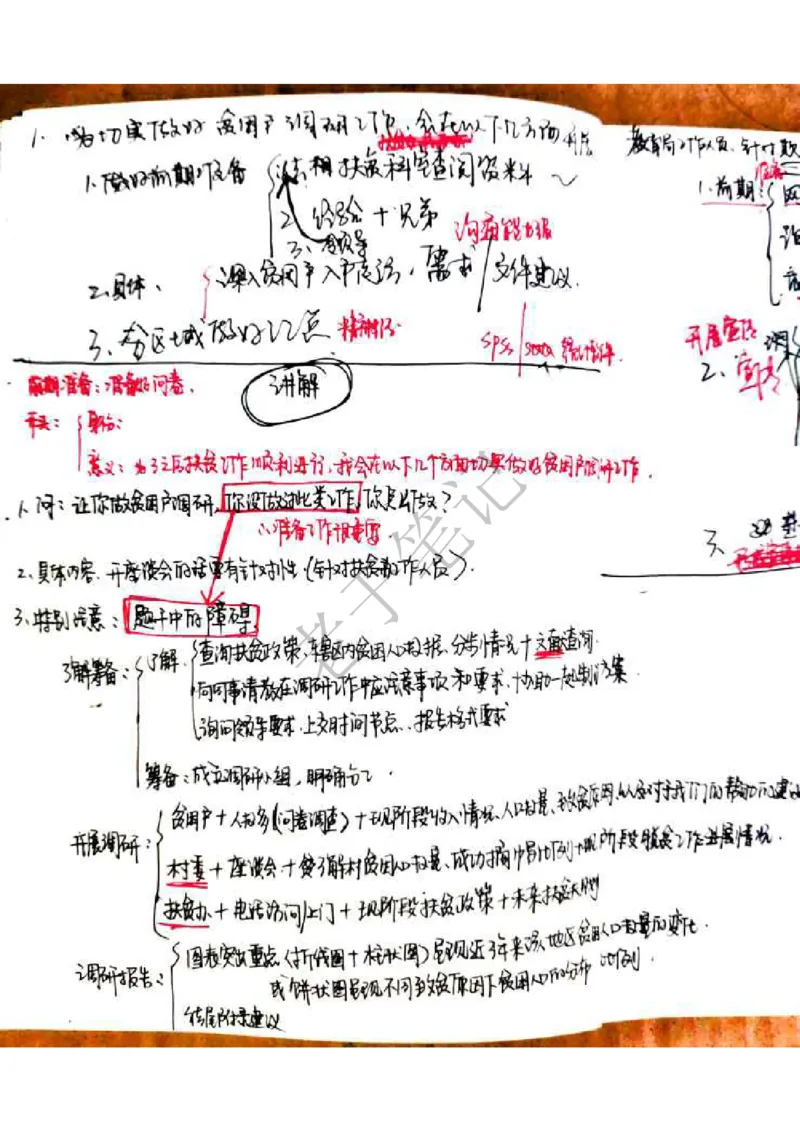 1. 为切实做好贫困户调研工作，会在以下几方面
1. 做好前期准备
去相关扶贫科室查阅资料
2. 经验十兄弟
3. 领导
2. 具体：
深入贫困户入户走访，需求 / 文件建议.
3. 分区域做好汇总
SPSS / stata 统计软件.
讲解
前期准备：准备好问卷.
开头：
身份：
意义：为了之后扶贫工作顺利进行，我会在以下几个方面切实做好贫困户调研工作.
1. 问：让你做贫困户调研，你没做过此类工作，你怎么做？
∴准备工作很重要
2. 具体内容. 开座谈会的话要有针对性（针对扶贫办工作人员）.
3. 特别注意：题干中的障碍
了解筹备：
了解
查询扶贫政策、辖区内贫困人口数据、分布情况十文献查询.
向同事请教在调研工作中应注意事项和要求、协助一起制方案
询问领导要求、上交时间节点、报告格式要求
筹备：成立调研小组，明确分工.
开展调研：
贫困户＋人口多（问卷调查）＋现阶段收入情况、人口数量、致贫原因、以及对于我们的帮助的建议
村委＋座谈会＋了解村贫困人口数量、成功摘帽比例＋现阶段脱贫工作进展情况.
扶贫办＋电话访问/上门＋现阶段扶贫政策＋未来扶贫
调研报告：
图表突出重点（折线图＋柱状图）呈现近3年来该地区贫困人口数量的变化.
或饼状图呈现不同致贫原因下贫困人口的分布比例.
结尾附录建议
教育局工作人员，针对
1. 前期：
开展宣传
2. 宣传
3.
老于笔记